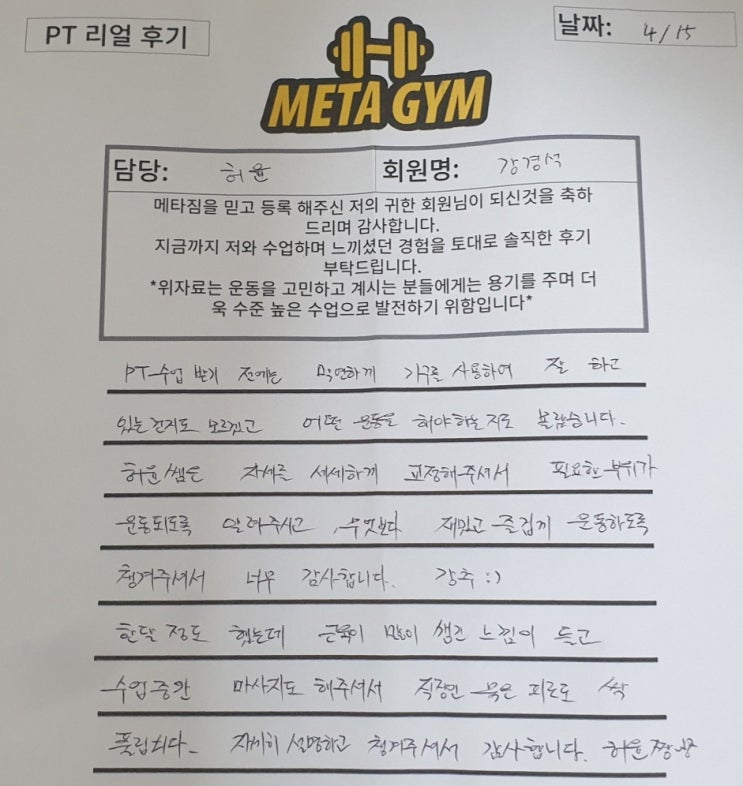 PT 리얼 후기
날짜: 4/15
META GYM
담당: 허윤
회원명: 강경석
메타짐을 믿고 등록 해주신 저의 귀한 회원님이 되신것을 축하
드리며 감사합니다.
지금까지 저와 수업하며 느끼셨던 경험을 토대로 솔직한 후기
부탁드립니다.
*위자료는 운동을 고민하고 계시는 분들에게는 용기를 주며 더
욱 수준 높은 수업으로 발전하기 위함입니다*
PT 수업 받기 전에는 막연하게 기구를 사용하여 잘 하고
있는건지도 모르겠고 어떤 운동을 해야하는지도 몰랐습니다.
허윤쌤은 자세를 세세하게 교정해주셔서 필요한 부위가
운동되도록 알려주시고, 무엇보다 재밌고 즐겁게 운동하도록
챙겨주셔서 너무 감사합니다. 강추 :)
한달 정도 했는데 근육이 많이 생긴 느낌이 들고
수업중간 마사지도 해주셔서 직장인 묵은 피로도 싹
풀립니다. 자세히 설명하고 챙겨주셔서 감사합니다. 허윤짱